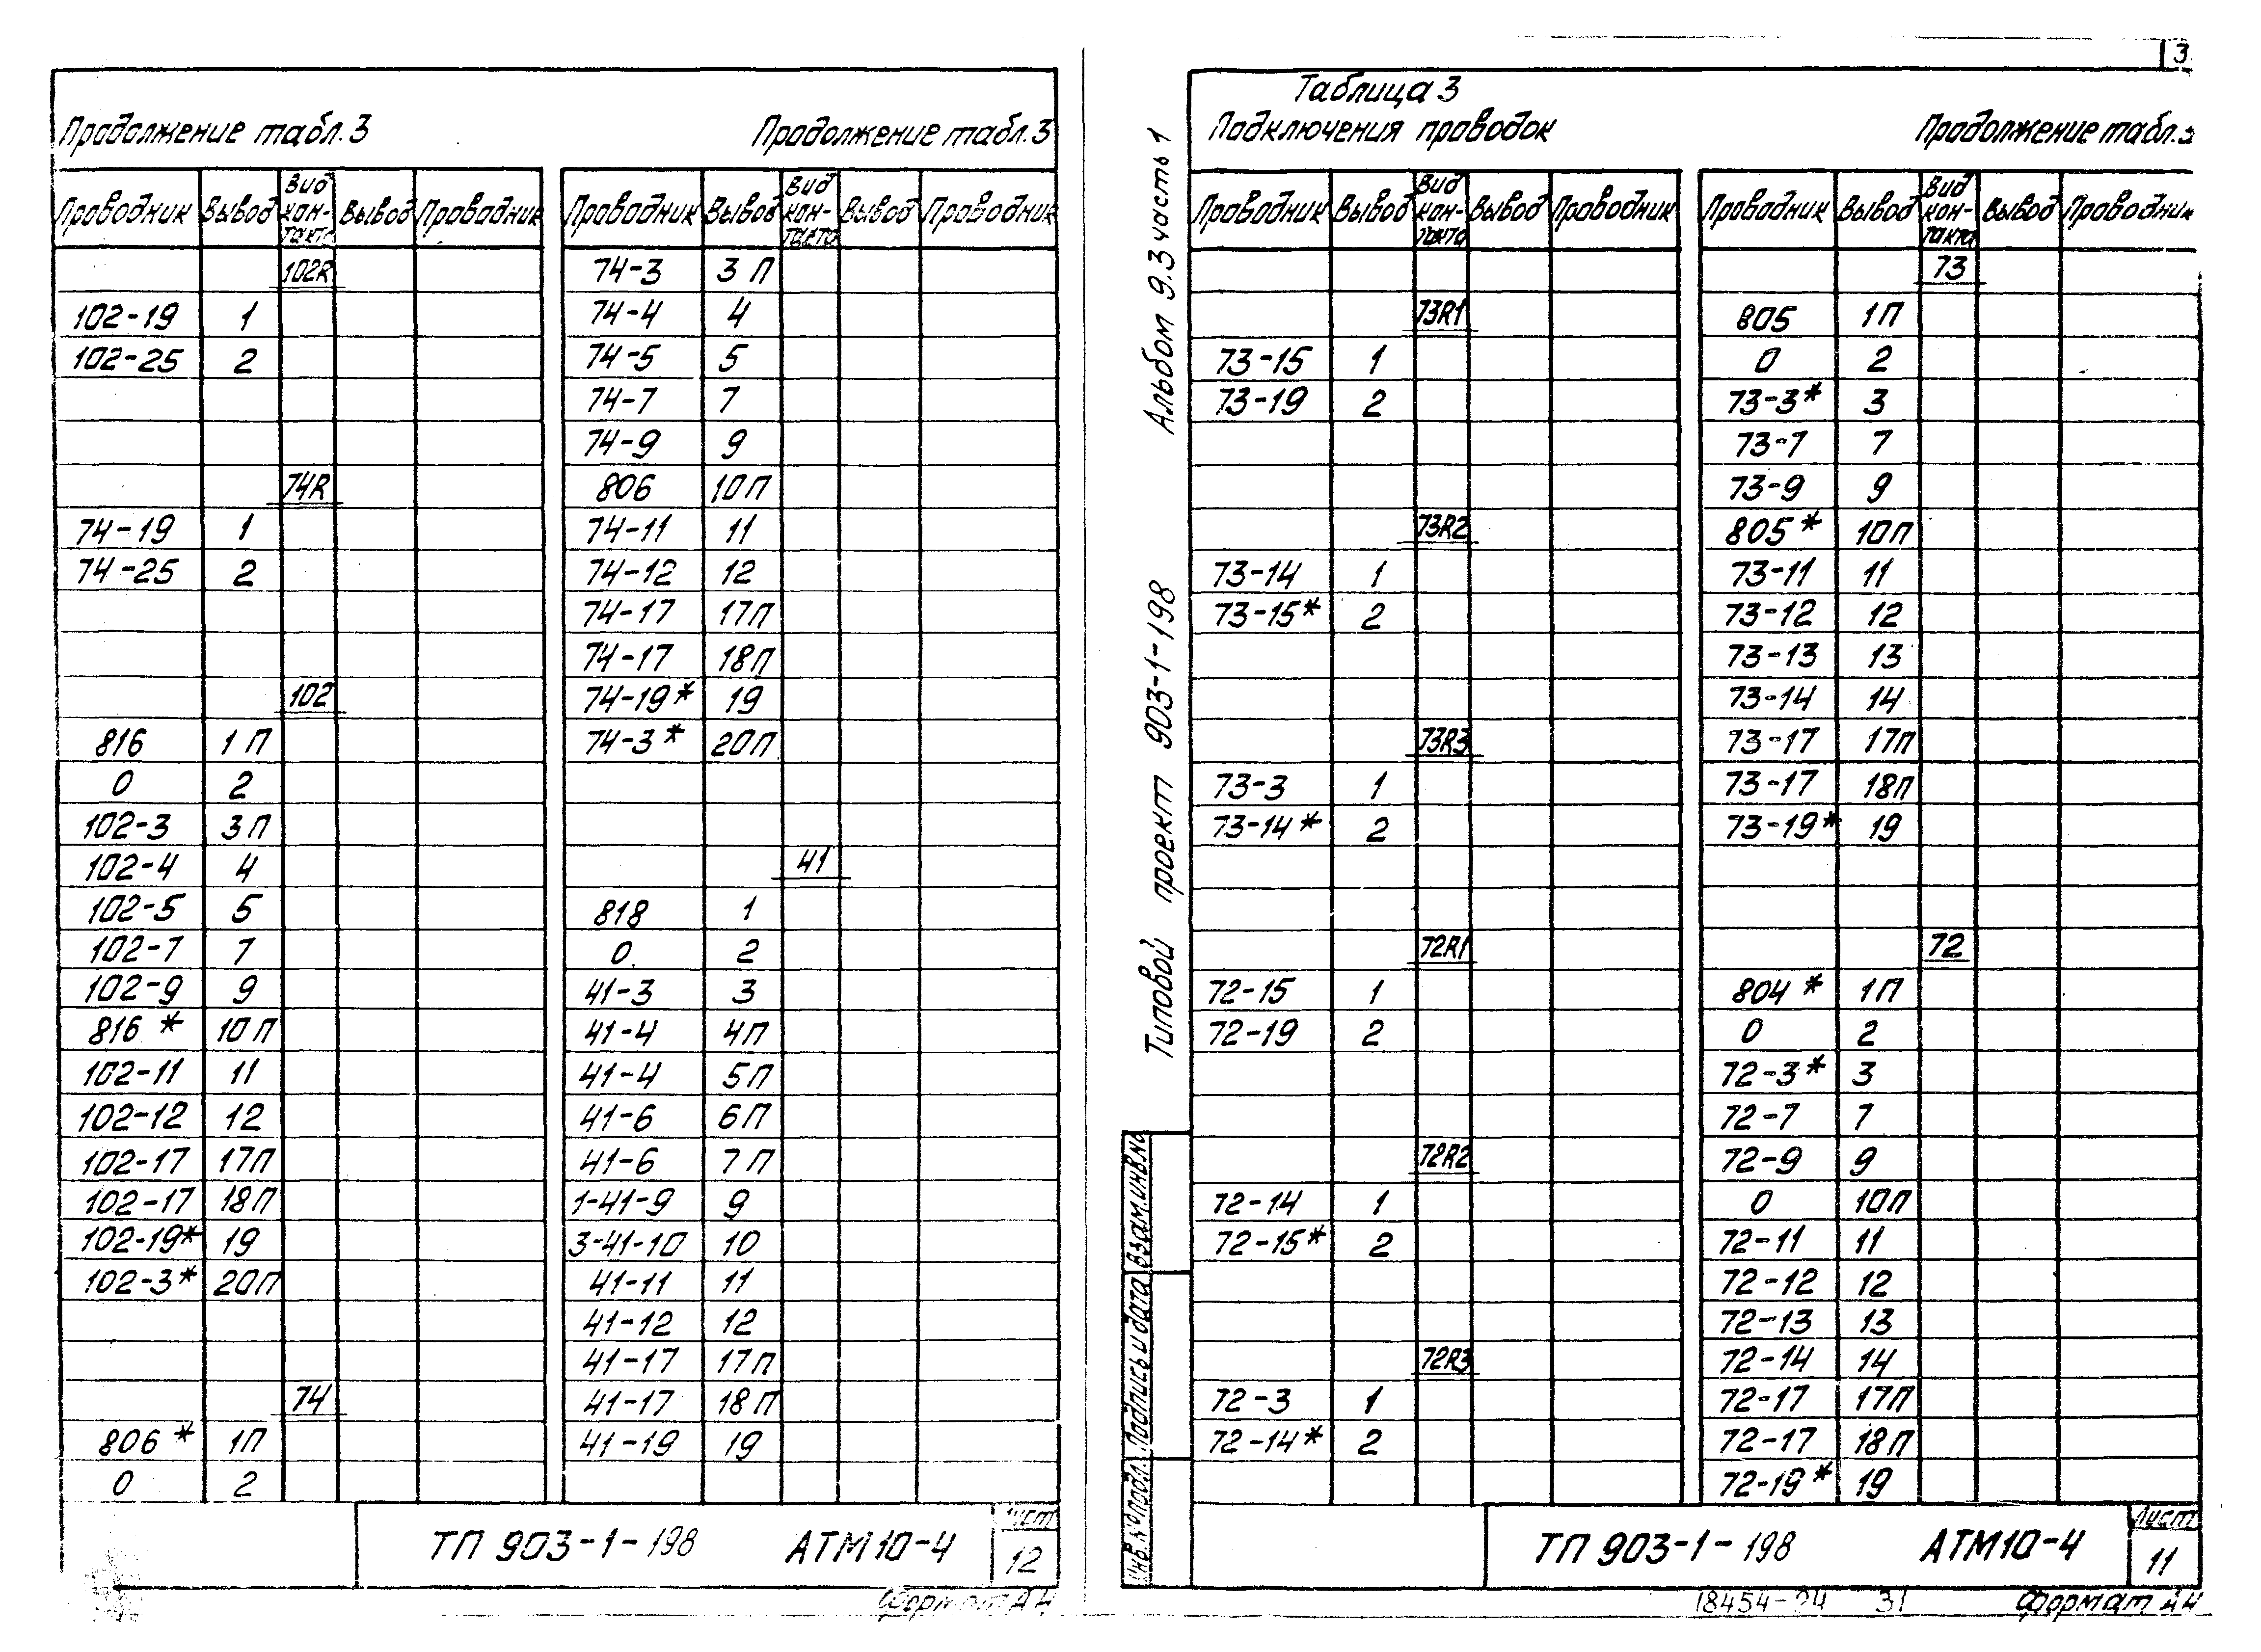 Продолжение табл.3
Продолжение табл.3
Проводник Вывод Вид кон-такта Вывод Проводник
102R
102-19 1
102-25 2
74R
74-19 1
74-25 2
102
816 1П
0 2
102-3 3П
102-4 4
102-5 5
102-7 7
102-9 9
816 * 10П
102-11 11
102-12 12
102-17 17П
102-17 18П
102-19* 19
102-3* 20П
74
806 * 1П
0 2
Проводник Вывод Вид кон-такта Вывод Проводник
74-3 3П
74-4 4
74-5 5
74-7 7
74-9 9
806 10П
74-11 11
74-12 12
74-17 17П
74-17 18П
74-19* 19
74-3* 20П
41
818 1
0 2
41-3 3
41-4 4П
41-4 5П
41-6 6П
41-6 7П
1-41-9 9
3-41-10 10
41-11 11
41-12 12
41-17 17П
41-17 18П
41-19 19
ТП 903-1-198 АТМ10-4
Лист
12
Формат А4
3
Таблица 3
Подключения проводок
Продолжение табл.3
Альбом 9.3 часть 1
Типовой проект 903-1-198
Проводник Вывод Вид кон-такта Вывод Проводник
73R1
73-15 1
73-19 2
73R2
73-14 1
73-15* 2
73R3
73-3 1
73-14* 2
72R1
72-15 1
72-19 2
72R2
72-14 1
72-15* 2
72R3
72-3 1
72-14* 2
Проводник Вывод Вид кон-такта Вывод Проводник
73
805 1П
0 2
73-3* 3
73-7 7
73-9 9
805* 10П
73-11 11
73-12 12
73-13 13
73-14 14
73-17 17П
73-17 18П
73-19* 19
72
804 * 1П
0 2
72-3* 3
72-7 7
72-9 9
0 10П
72-11 11
72-12 12
72-13 13
72-14 14
72-17 17П
72-17 18П
72-19* 19
Взам.инв.№
Подпись и дата
Инв.№подл.
ТП 903-1-198 АТМ10-4
Лист
11
18454-24 31
Формат А4